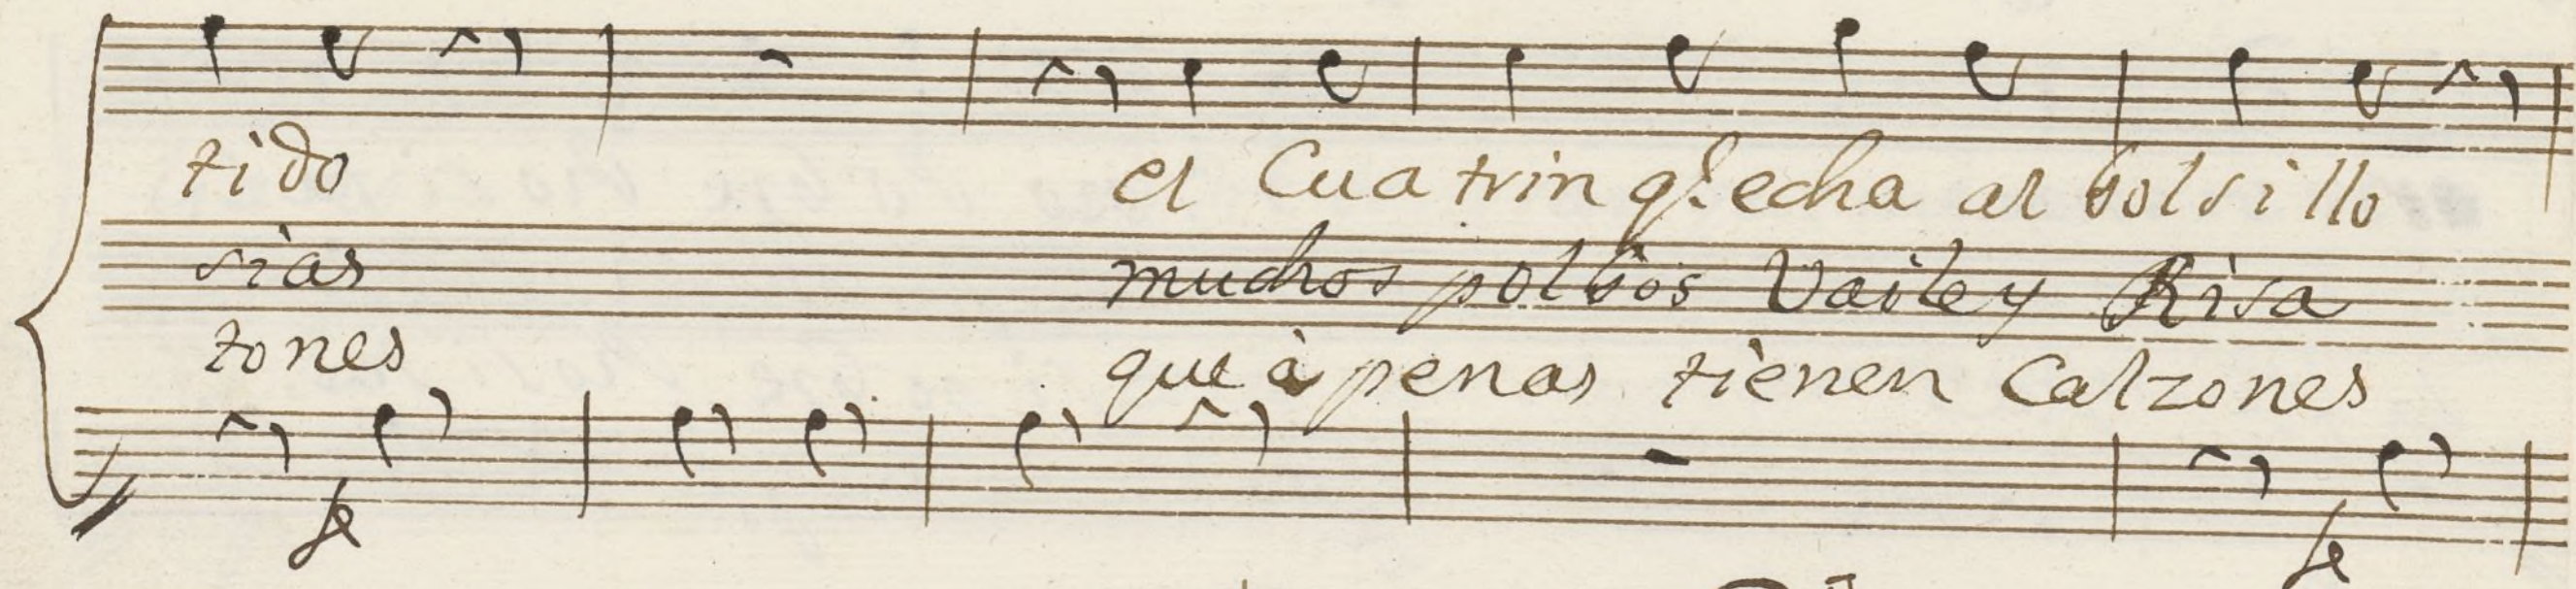 tido el Cua trin q.e echa al bolsillo
sias muchos polbos Vaile y Risa
tones que à penas tienen Calzones
fe fe